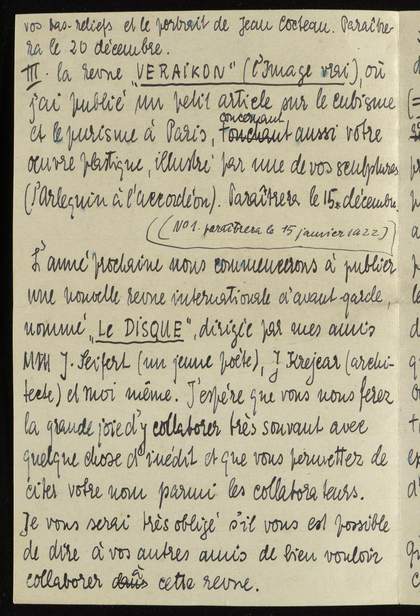 vos bas-reliefs et le portrait de Jean Cocteau. Paraîtra-
ra le 20 décembre.
III. la revue "VERAIKON" (l'Image vrai), où
j'ai publié un petit article sur le cubisme
et le purisme à Paris, touchant concernant aussi votre
œuvre plastique, illustré par une de vos sculptures
(l'Arlequin à l'accordéon). Paraîtrera le 15. décembre.
((No 1. paraîtrera le 15 janvier 1922))
L'anné prochaine nous commencerons à publier
une nouvelle revue internationale d'avant garde,
nommé "Le DISQUE", dirigée par mes amis
MM J. Seifert (un jeune poète), J Krejcar (archi-
tecte) et moi même. J'espére que vous nous ferez
la grande joie d'y collaborer très souvant avec
quelque chose d'inédit et que vous permettez de
citer votre nom parmi les collaborateurs.
Je vous serai très obligé s'il vous est possible
de dire à vos autres amis de bien vouloir
collaborer dans à cette revue.